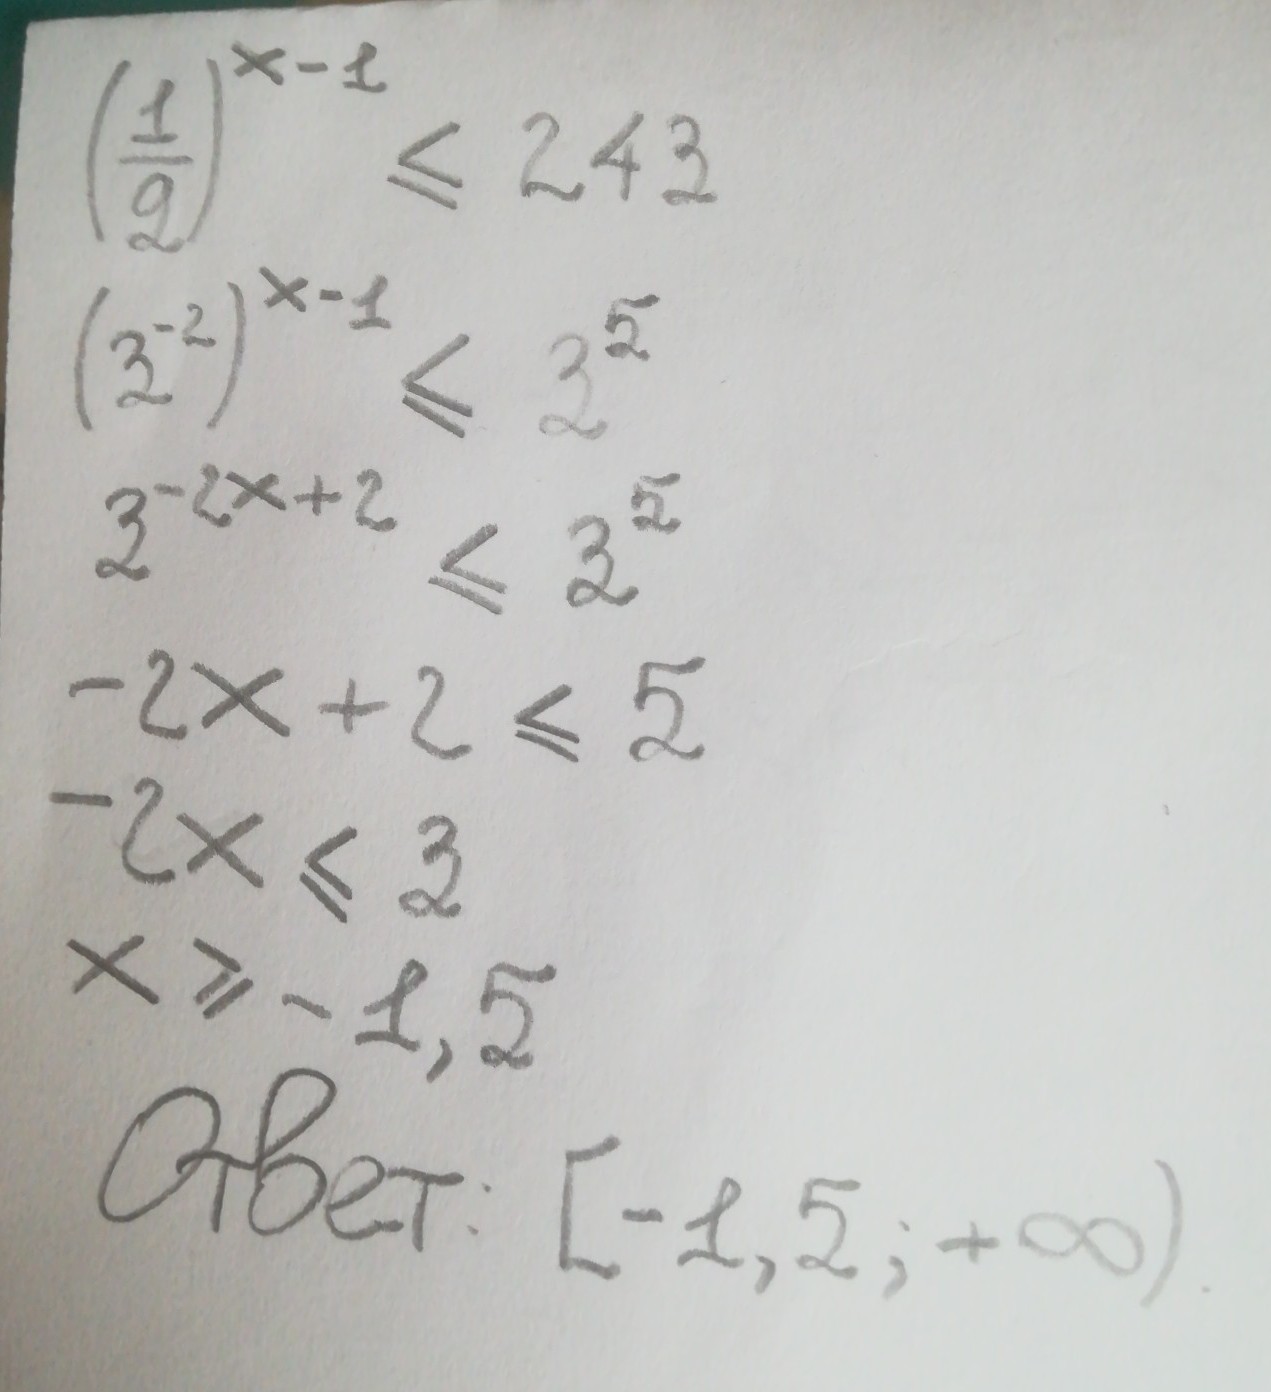 (1/9)^(x-1) ⩽ 243
(3^(-2))^(x-1) ⩽ 3^5
3^(-2x+2) ⩽ 3^5
-2x+2 ⩽ 5
-2x ⩽ 3
x ⩾ -1,5
Ответ: [-1,5; +∞).